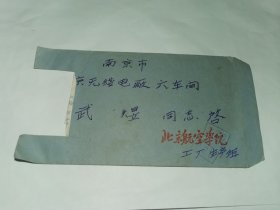 南京市
无线电厂 六车间
武 煜 同志 启
北京航空学院
工厂